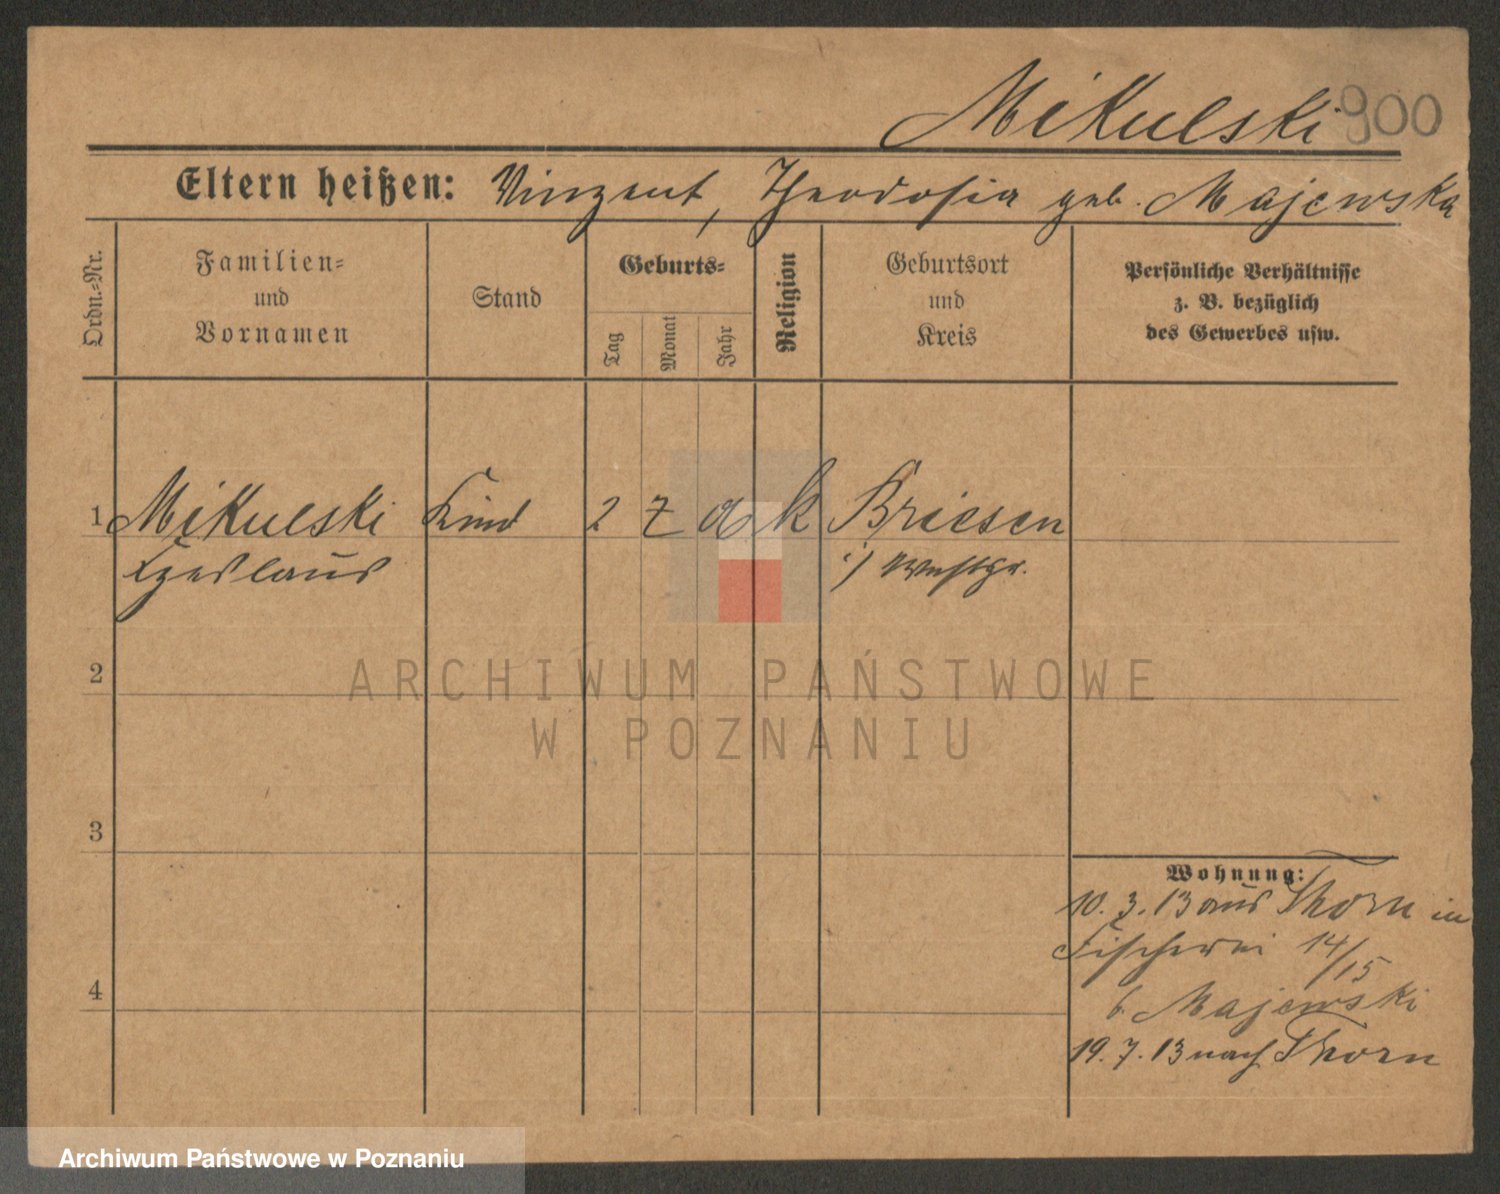 Mikulski 900
Eltern heißen: Vinzent, Theodosia geb. Majewska
Ordn.-Nr.
Familien-
und
Vornamen
Stand
Geburts-
Tag
Monat
Jahr
Religion
Geburtsort
und
Kreis
Persönliche Verhältnisse
z. B. bezüglich
des Gewerbes usw.
1 Mikulski Kind 2 7 k Briesen
Czeslaus i/ Westpr.
2
3
4
Wohnung:
10. 3. 13 aus Thorn in
Fischerei 14/15
b. Majewski
19. 7. 13 nach Thorn
ARCHIWUM PAŃSTWOWE
W POZNANIU
Archiwum Państwowe w Poznaniu